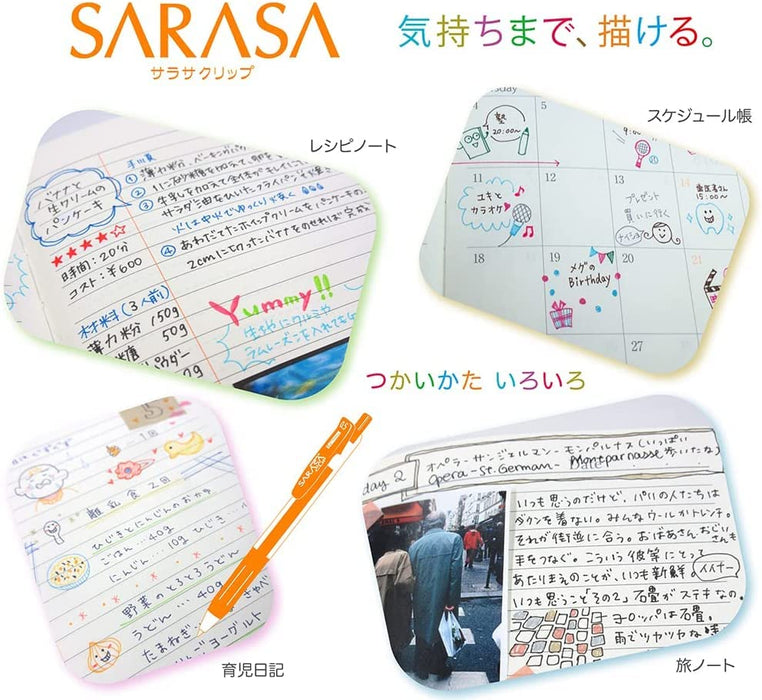 SARASA
サラサクリップ
気持ちまで、描ける。
レシピノート
バナナと
生クリームの
パンケーキ
時間：20分
コスト：¥600
材料(3人前)
薄力粉 150g
糖 50g
パウダー
手順
① 薄力粉、ベーキングパ
② 1に砂糖を加えて卵を
③ 牛乳を加えて
サラダ油をひいたフライパンで
火は中火でゆっくり焼く
④ あわだてたホイップクリームをパンケーキの
2cmに切ったバナナをのせれば完成
Yummy!!
生地にクルミや
ラムレーズンを入れても
スケジュール帳
sday
4
5
塾
20:00〜
9:00
11
12
13
14
ユキと
カラオケ
プレゼント
買いに行く
ナイショ
歯医者さん
15:00〜
18
19
20
21
メグの
Birthday
27
つかいかた いろいろ
5
離乳食2回
ひじきとにんじんのおかゆ
ごはん…40g
にんじん…10g ひじき…
野菜のとろとろうどん
うどん…40g
たまねぎ
きゃべ
りんごヨーグルト
SARASA
育児日記
day 2
オペラーサンジェルマンーモンパルナス(いっぱい
歩いたな)
Opera-St.German- Montparnasse
いつも思うのだけど、パリの人たちは
ダウンを着ない。みんなウールかトレンチ。
それが街並に合う。おばあさんおじいさんも
手をつなぐ。こういう彼等にとって
あたりまえのことが、いつも新鮮。
イイナー
いつも思うこと「その2」石畳がステキなの。
ヨーロッパは石畳。
雨でツヤツヤな時
旅ノート